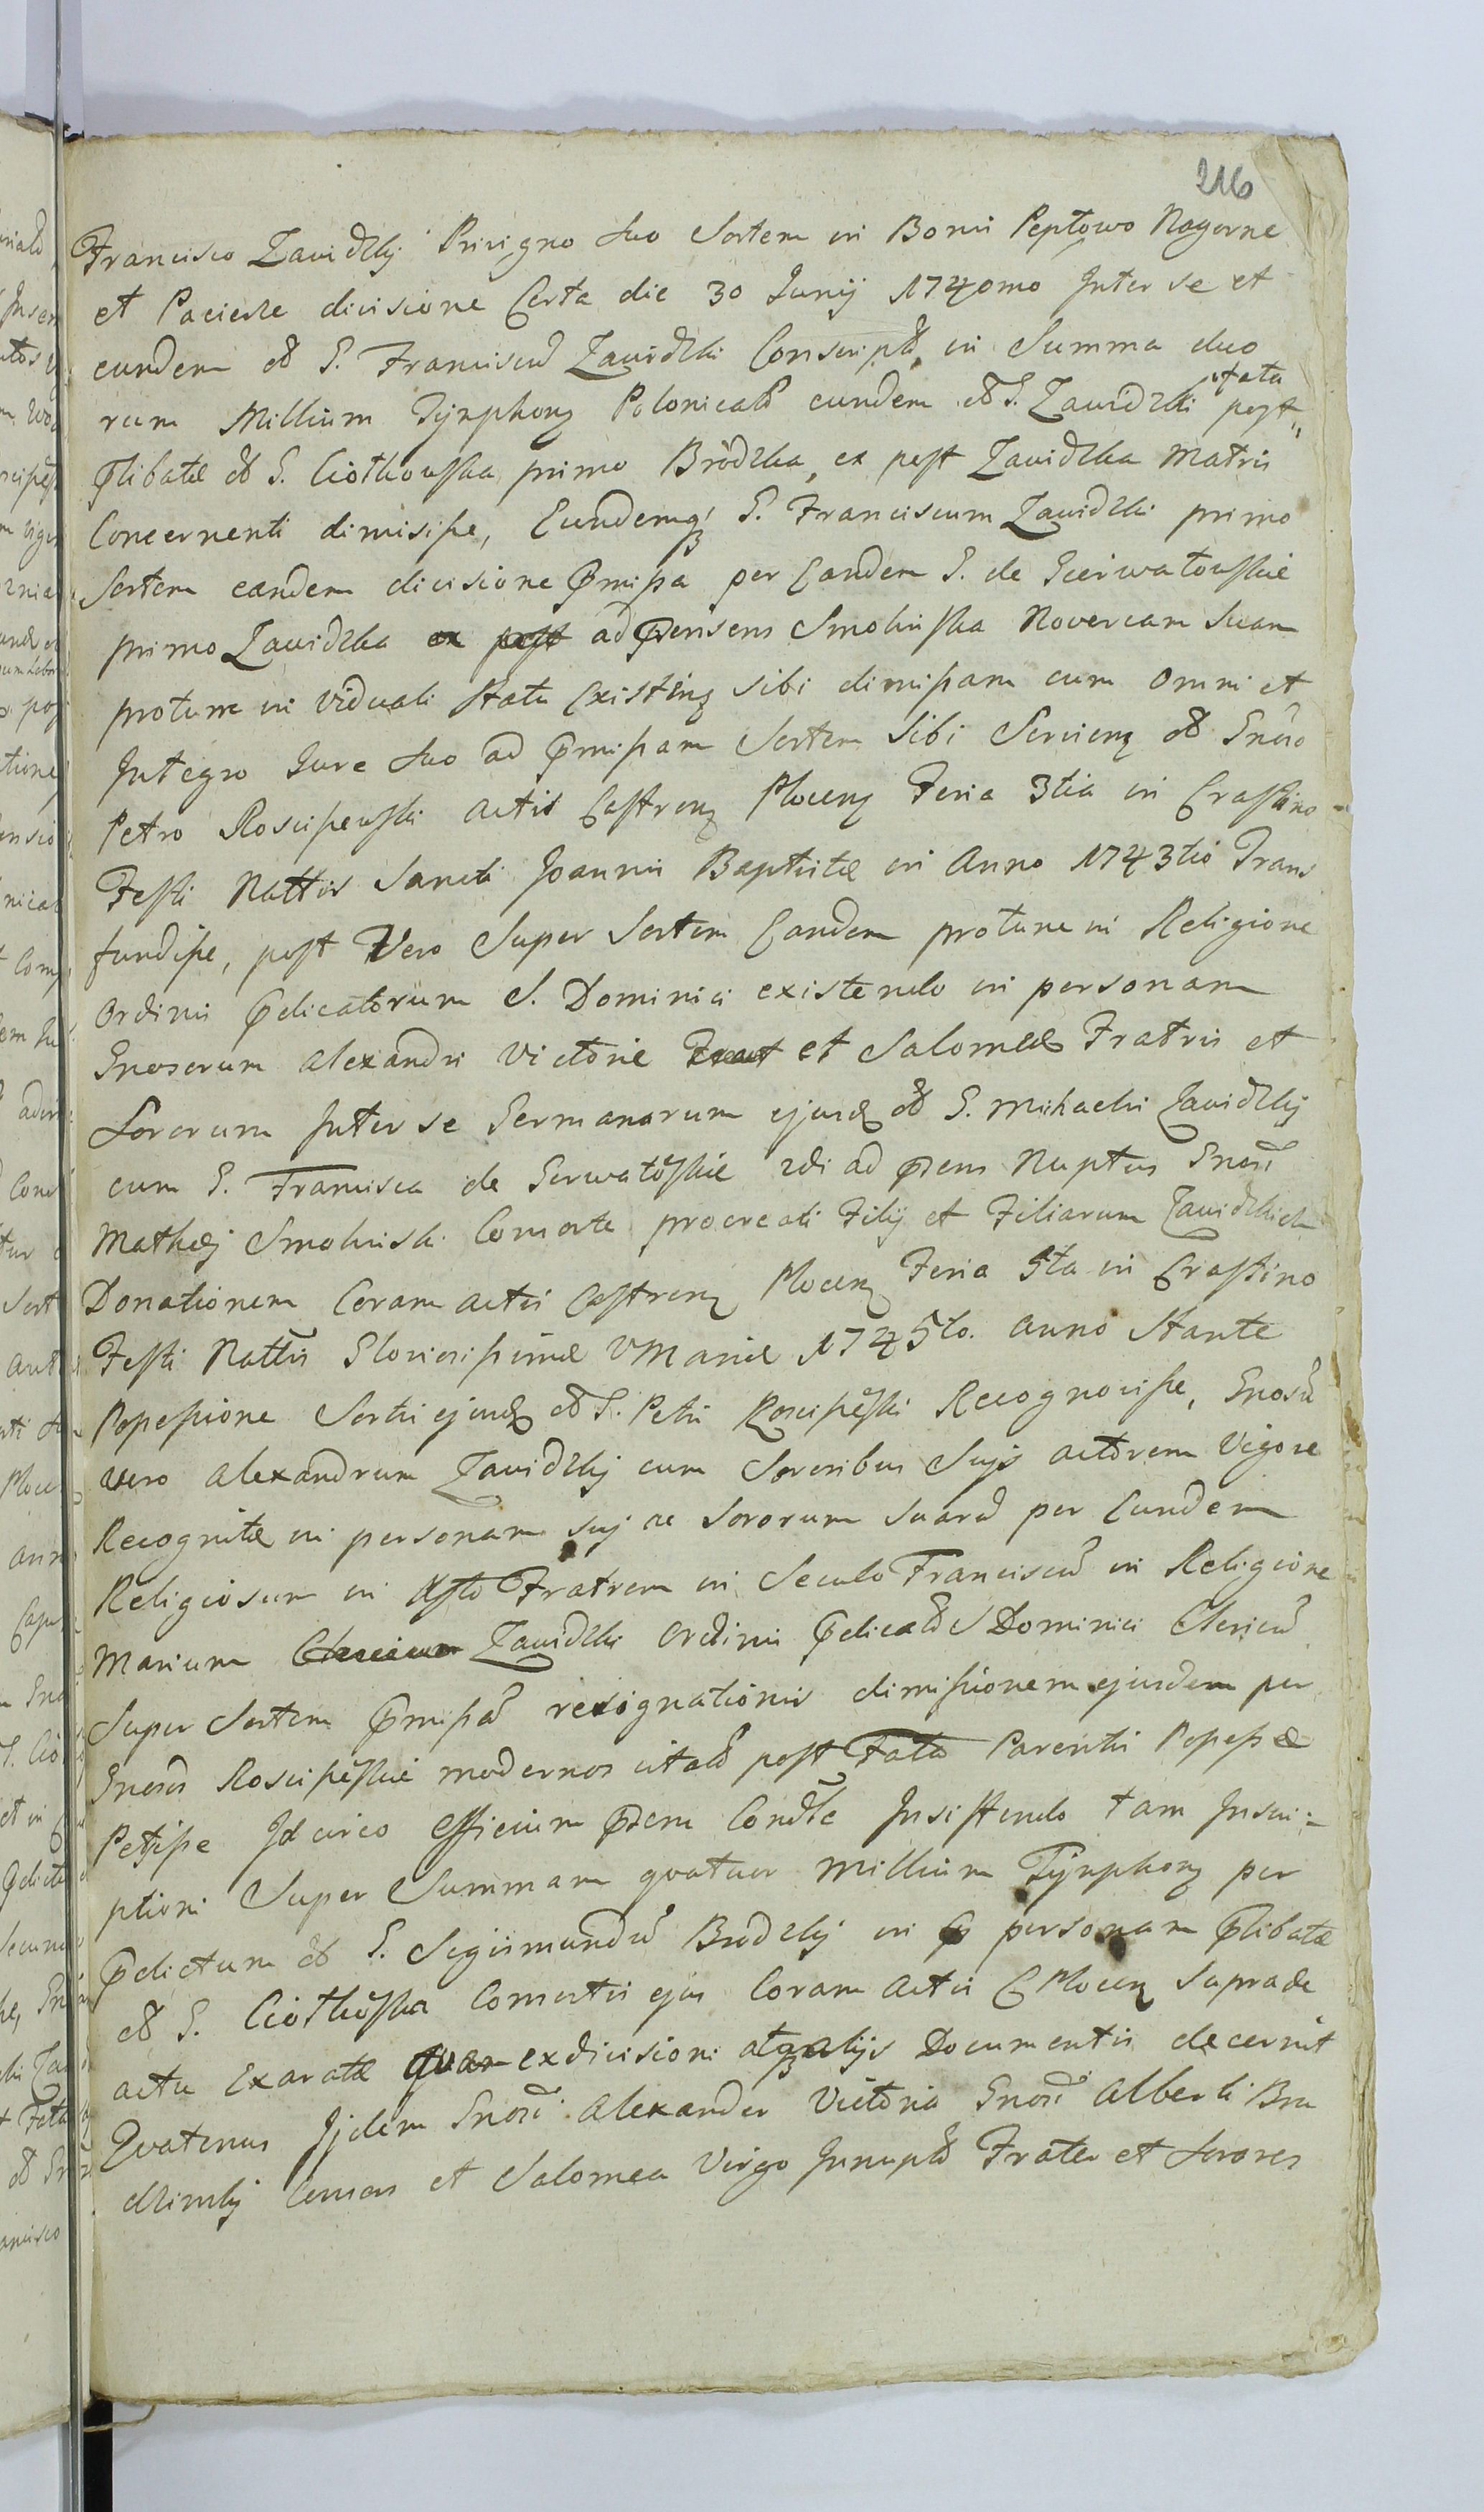 216
Francisco Zawidzkij Privigno suo Sortem in Bonis Peptowo Nagorne
et Pacierze divisione Certa die 30 Junij 1740mo Inter se et
eundem olĩ G. Franciscũ Zawidzki Conscriptã in Summa duo
rum Millium Tÿnphonꝝ Polonicalĩ eundem olĩ G. Zawidzki post„ fata
ꝑlibatæ olĩ G. Ciotkowska primo Brodzka, ex post Zawidzka Matris
Concernenti dimisisse, Eundemqꝫ G. Franciscum Zawidzki primo
Sortem eandem divisione p̃missa per Eandem G. de Gierwatowskie
primo Zawidzka ex post ad p̃sens Smolinska Novercam Suam
protunc in Viduali Statu Existenꝭ sibi dimissam cum omni et
Integro Jure suo ad p̃missam Sortem Sibi Servienꝭ olĩ Gnõso
Petro Roscissewski actis Castrenꝭ Plocenꝭ Feria 3tia in Crastino
Festi Nattis Sancti Joannis Baptistæ in Anno 1743tio Trans
fundisse, post Vero Super Sortem Eandem protunc in Religione
Ordinis p̃dicatorum S. Dominici existendo in personam
Gnosorum Alexandri Victorie Frat et Salomeæ Fratris et
Sororum Inter se Germanarum ejusdꝫ olĩ G. Michaelis Zawidzkij
cum G. Francisca de Gierwatõskie 2di ad p̃sens Nuptus Gnosĩ
Mathæj Smolinski Consorte procreati Filij et Filiarum Zawidzkich
Donationem Coram actis Castrenꝭ Plocenꝭ Feria 5ta in Crastino
Festi Nattis Gloriosissimæ V Mariæ 1745to. anno stante
Possessione Sortis ejusdꝫ olĩ G. Petri Roscissẽski Recognovisse, Gnosũ
vero Alexandrum Zawidzkij cum Sororibus Suis actorem Vigore
Recognitæ in personam sui ac Sororum Suarũ per Eundem
Religiosum in Xsto Fratrem in Seculo Franciscũ in Religione
Marium Clericum Zawidzki Ordinis p̃dicatorũ S Dominici Clericũ
Super Sortem p̃missã resignationis dimissionem ejusdem per
Gnosos Roscissẽskie modernos citatõ post Fata Parentis Possessæ
Petisse Idcirco Officium p̃sens Condle Insistendo tam Inscri-
ptioni Super Summam qvatuor Millium Tÿnphonꝝ per
p̃dictum olĩ G. Sigismundũ Brodzkij in p personam p̃libatæ
olĩ G. Ciotkõska Consortis ejus Coram Actis C Plocenꝭ Suprade
actu Exaratæ quam exdivisioni atqꝫ alijs Documentis decernit
Qvatenus Ijdem Gnosĩ Alexander Victoria Gnosĩ Alberti Bro
dzinskj Consors et Salomea Virgo Innuptã Frater et Sorores